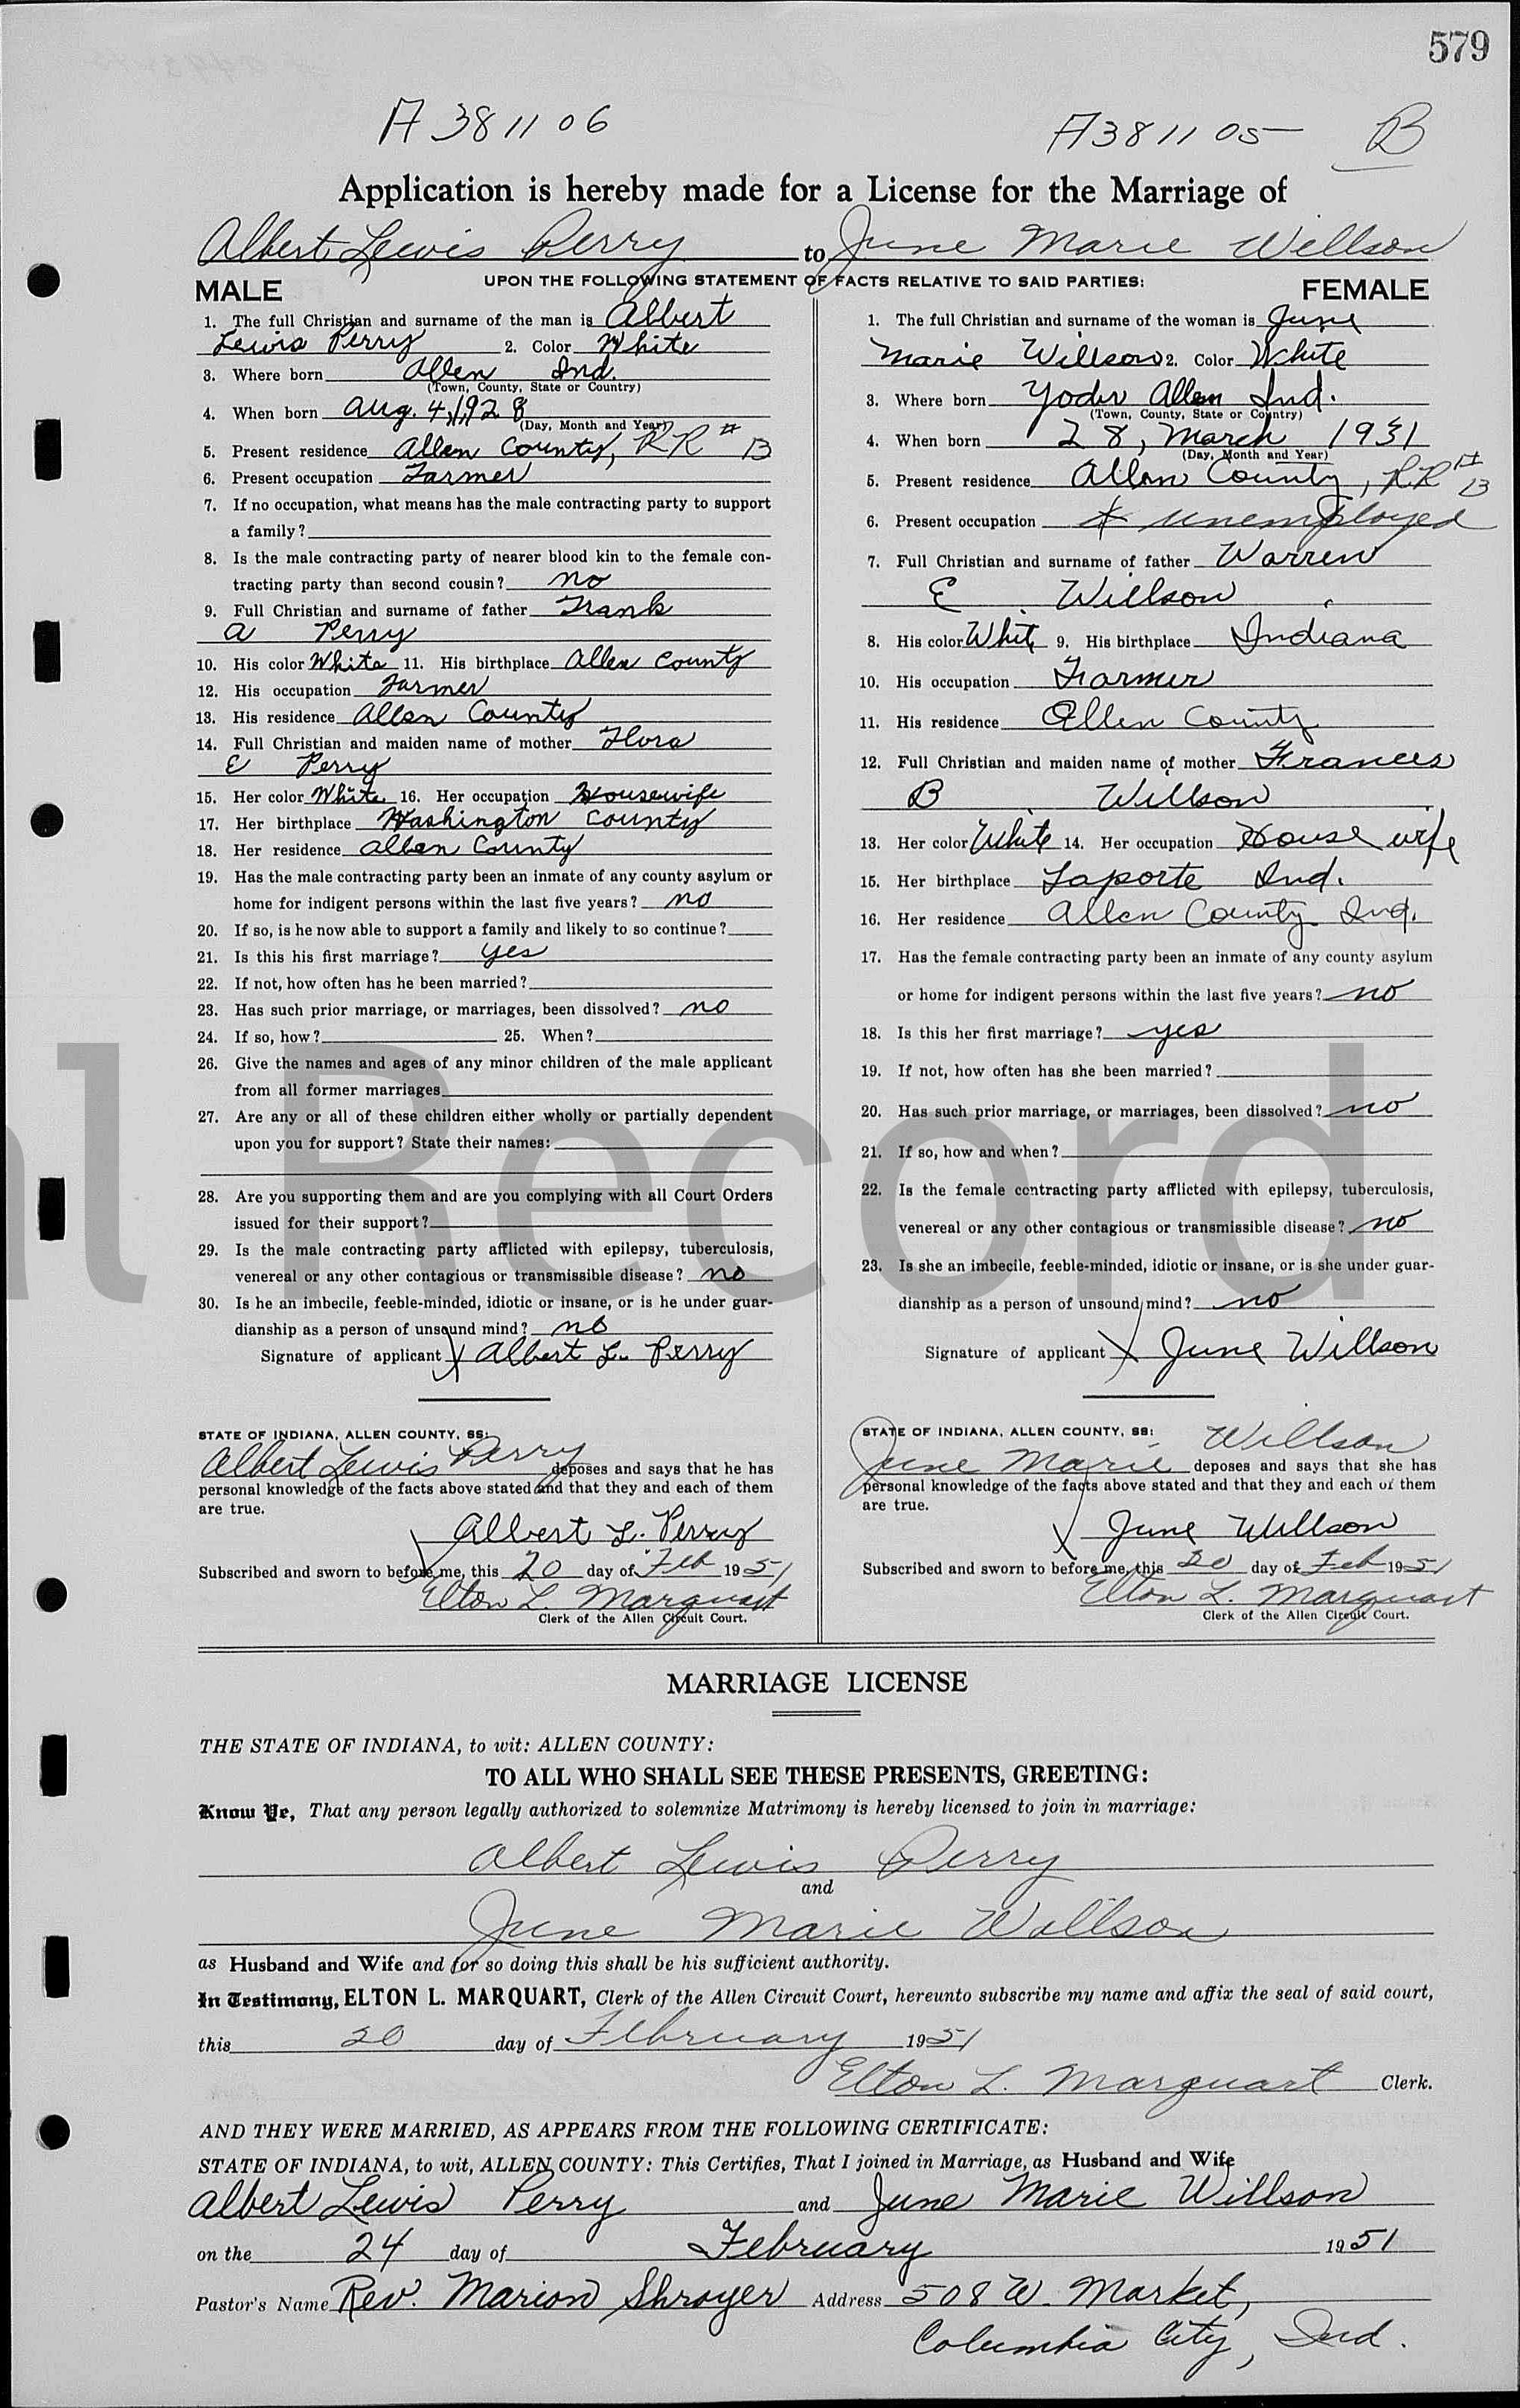 579
A 381106
A381105
B
Application is hereby made for a License for the Marriage of
Albert Lewis Perry to June Marie Willson
UPON THE FOLLOWING STATEMENT OF FACTS RELATIVE TO SAID PARTIES:
MALE
1. The full Christian and surname of the man is Albert
Lewis Perry 2. Color White
3. Where born Allen Ind.
(Town, County, State or Country)
4. When born Aug. 4, 1928
(Day, Month and Year)
5. Present residence Allen County, RR #
6. Present occupation Farmer
7. If no occupation, what means has the male contracting party to support
a family?
8. Is the male contracting party of nearer blood kin to the female con-
tracting party than second cousin? no
9. Full Christian and surname of father Frank
A Perry
10. His color White 11. His birthplace Allen County
12. His occupation Farmer
13. His residence Allen County
14. Full Christian and maiden name of mother Flora
E Perry
15. Her color White 16. Her occupation Housewife
17. Her birthplace Washington County
18. Her residence Allen County
19. Has the male contracting party been an inmate of any county asylum or
home for indigent persons within the last five years? no
20. If so, is he now able to support a family and likely to so continue?
21. Is this his first marriage? yes
22. If not, how often has he been married?
23. Has such prior marriage, or marriages, been dissolved? no
24. If so, how? 25. When?
26. Give the names and ages of any minor children of the male applicant
from all former marriages
27. Are any or all of these children either wholly or partially dependent
upon you for support? State their names:
28. Are you supporting them and are you complying with all Court Orders
issued for their support?
29. Is the male contracting party afflicted with epilepsy, tuberculosis,
venereal or any other contagious or transmissible disease? no
30. Is he an imbecile, feeble-minded, idiotic or insane, or is he under guar-
dianship as a person of unsound mind? no
Signature of applicant X Albert L. Perry
STATE OF INDIANA, ALLEN COUNTY, SS:
Albert Lewis Perry deposes and says that he has
personal knowledge of the facts above stated and that they and each of them
are true.
X Albert L. Perry
Subscribed and sworn to before me, this 20 day of Feb 1951
Elton L. Marquart
Clerk of the Allen Circuit Court.
FEMALE
1. The full Christian and surname of the woman is June
Marie Willson 2. Color White
3. Where born Yoder Allen Ind.
(Town, County, State or Country)
4. When born 28, March 1931
(Day, Month and Year)
5. Present residence Allen County, RR #
6. Present occupation unemployed
7. Full Christian and surname of father Warren
E Willson
8. His color White 9. His birthplace Indiana
10. His occupation Farmer
11. His residence Allen County
12. Full Christian and maiden name of mother Frances
B Willson
13. Her color White 14. Her occupation House wife
15. Her birthplace Laporte Ind.
16. Her residence Allen County Ind.
17. Has the female contracting party been an inmate of any county asylum
or home for indigent persons within the last five years? no
18. Is this her first marriage? yes
19. If not, how often has she been married?
20. Has such prior marriage, or marriages, been dissolved? no
21. If so, how and when?
22. Is the female contracting party afflicted with epilepsy, tuberculosis,
venereal or any other contagious or transmissible disease? no
23. Is she an imbecile, feeble-minded, idiotic or insane, or is she under guar-
dianship as a person of unsound mind? no
Signature of applicant X June Willson
STATE OF INDIANA, ALLEN COUNTY, SS: Willson
June Marie deposes and says that she has
personal knowledge of the facts above stated and that they and each of them
are true.
X June Willson
Subscribed and sworn to before me, this 20 day of Feb 1951
Elton L. Marquart
Clerk of the Allen Circuit Court.
l Record
MARRIAGE LICENSE
THE STATE OF INDIANA, to wit: ALLEN COUNTY:
TO ALL WHO SHALL SEE THESE PRESENTS, GREETING:
Know Ye, That any person legally authorized to solemnize Matrimony is hereby licensed to join in marriage:
Albert Lewis Perry
and
June Marie Willson
as Husband and Wife and for so doing this shall be his sufficient authority.
In Testimony, ELTON L. MARQUART, Clerk of the Allen Circuit Court, hereunto subscribe my name and affix the seal of said court,
this 20 day of February 1951
Elton L. Marquart Clerk.
AND THEY WERE MARRIED, AS APPEARS FROM THE FOLLOWING CERTIFICATE:
STATE OF INDIANA, to wit, ALLEN COUNTY: This Certifies, That I joined in Marriage, as Husband and Wife
Albert Lewis Perry and June Marie Willson
on the 24 day of February 1951
Pastor's Name Rev. Marion Shroyer Address 508 W. Market,
Columbia City, Ind.